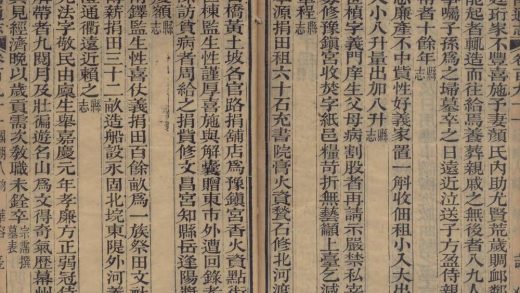 起珩家不豐喜施予妻顏氏內助尤賢荒歲賙卹鄰
能起者輒造而往給焉喪葬親戚之無後者八九人
事囑子孫爲之埽墓卒之日遠近泣送子方盈侍親
帶者十餘年縣志
念廉產不中貲性好義家置一斛收佃租小入大出
大小八升量出加八升志
世楨字義門庠生父母病割股者再請示嚴禁私宰
麥修豫鎮宮收焚字紙邑糧奇折無藝籲上臺乞減
章程縣志
源捐田租六十石充書院膏火資甃石修北河渡
橋黃土坡各官路捐舖店爲豫鎮宮香火資點街
棟監生性謹厚喜施與解囊贈東市外遭回錄者
訪貧病者周給之捐貲修文昌宮知縣岳逢陽獎
額縣志
鐸監生性喜仗義捐田百餘畝爲一族祭田文
薪捐田三十二畝造船設永固北垸東隄外河義
通衢遠近賴之縣志
法字敬民由廩生舉嘉慶元年孝廉方正弱冠侍
帶者九閱月及壯徧遊名山爲文得奇氣歷幕州
見經濟晚以歲貢需次教職未銓卒墓表